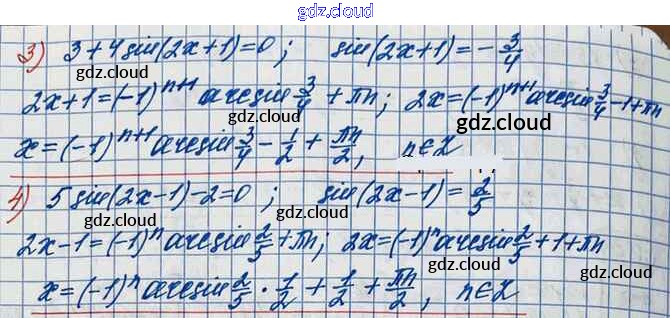 gdz.cloud
3) 3+4sin(2x+1)=0; sin(2x+1)=-3/4
gdz.cloud gdz.cloud
2x+1=(-1)^{n+1} arcsin 3/4 + πn; 2x=(-1)^{n+1} arcsin 3/4 -1+πn
gdz.cloud gdz.cloud
x=(-1)^{n+1} arcsin 3/4 - 1/2 + πn/2, n∈Z
4) 5sin(2x-1)-2=0; sin(2x-1)=2/5
gdz.cloud gdz.cloud
2x-1=(-1)^n arcsin 2/5 +πn; 2x=(-1)^n arcsin 2/5 +1+πn
gdz.cloud gdz.cloud
x=(-1)^n arcsin 2/5 · 1/2 + 1/2 + πn/2, n∈Z
gdz.cloud